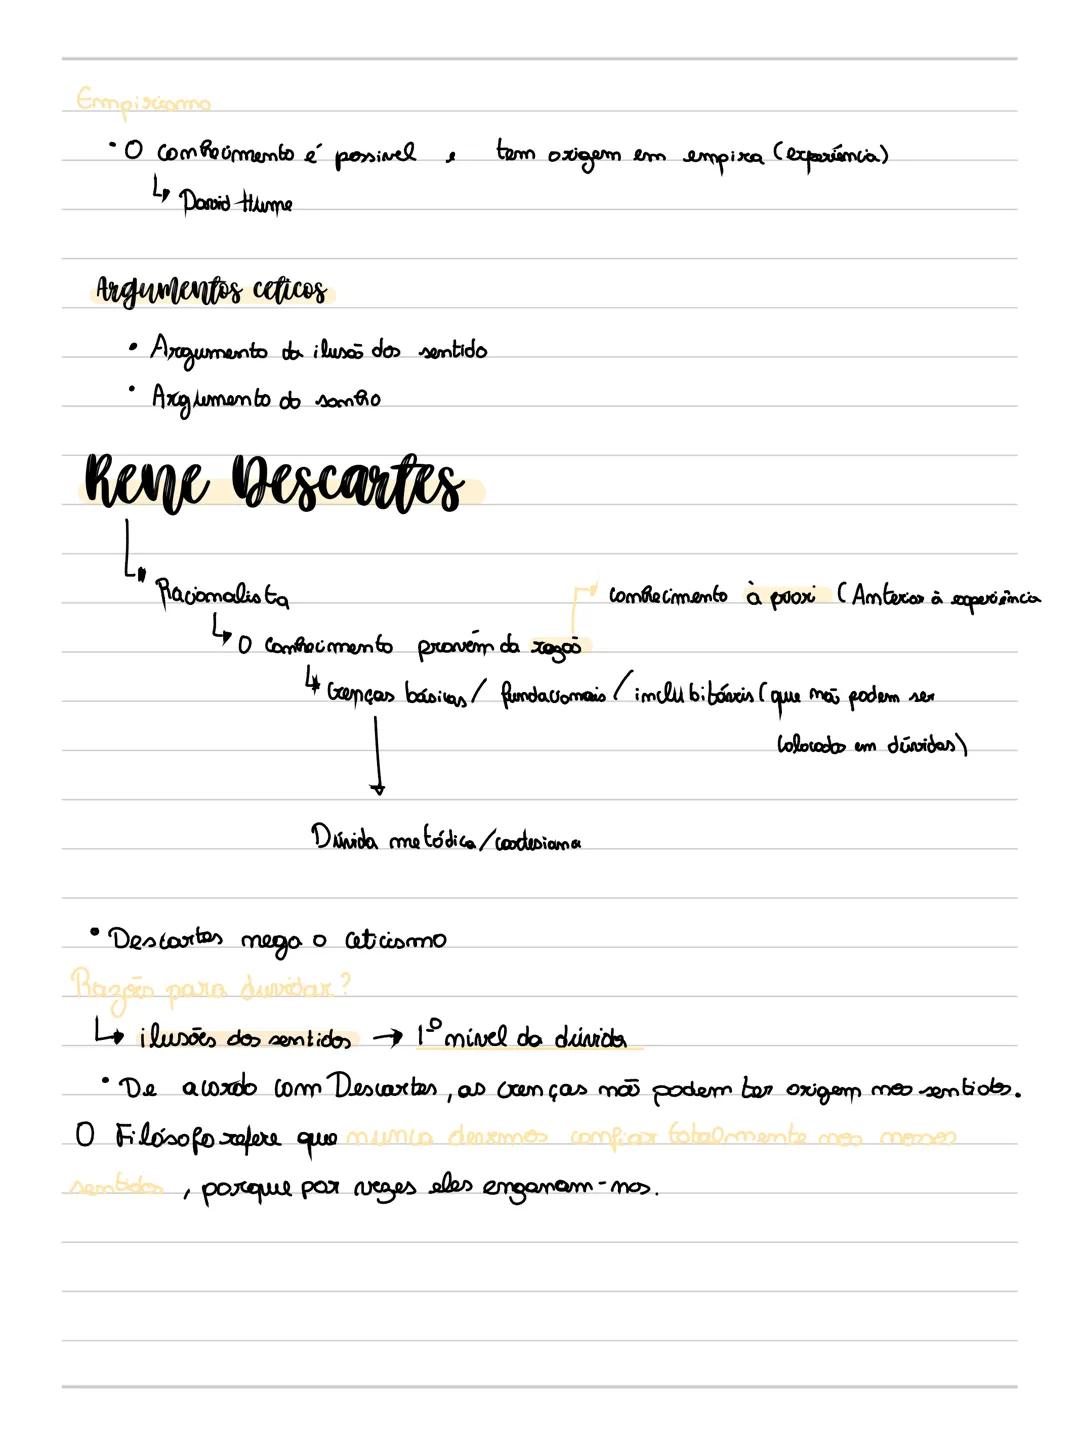 Empirismo
• O conhecimento é possivel e tem origem em empira (experiência)
↳ David Hume
Argumentos ceticos
• Argumento da ilusão dos sentido
• Argumento do sonho
Rene Descartes
↳ Racionalista
conhecimento à priori (Anterior à experiência
↳ O conhecimento provém da razão
↳ Crenças básicas / fundacionais / inclubitáveis (que não podem ser
colocadas em dúvidas)
Dúvida metódica/cartesiana
• Descartes nega o ceticismo
Razões para duvidar?
↳ ilusões dos sentidos → 1º nível da dúvida
• De acordo com Descartes, as crenças não podem ter origem nos sentidos.
O Filósofo refere que nunca devemos confiar totalmente nos nossos
sentidos, porque por vezes eles enganam-nos.